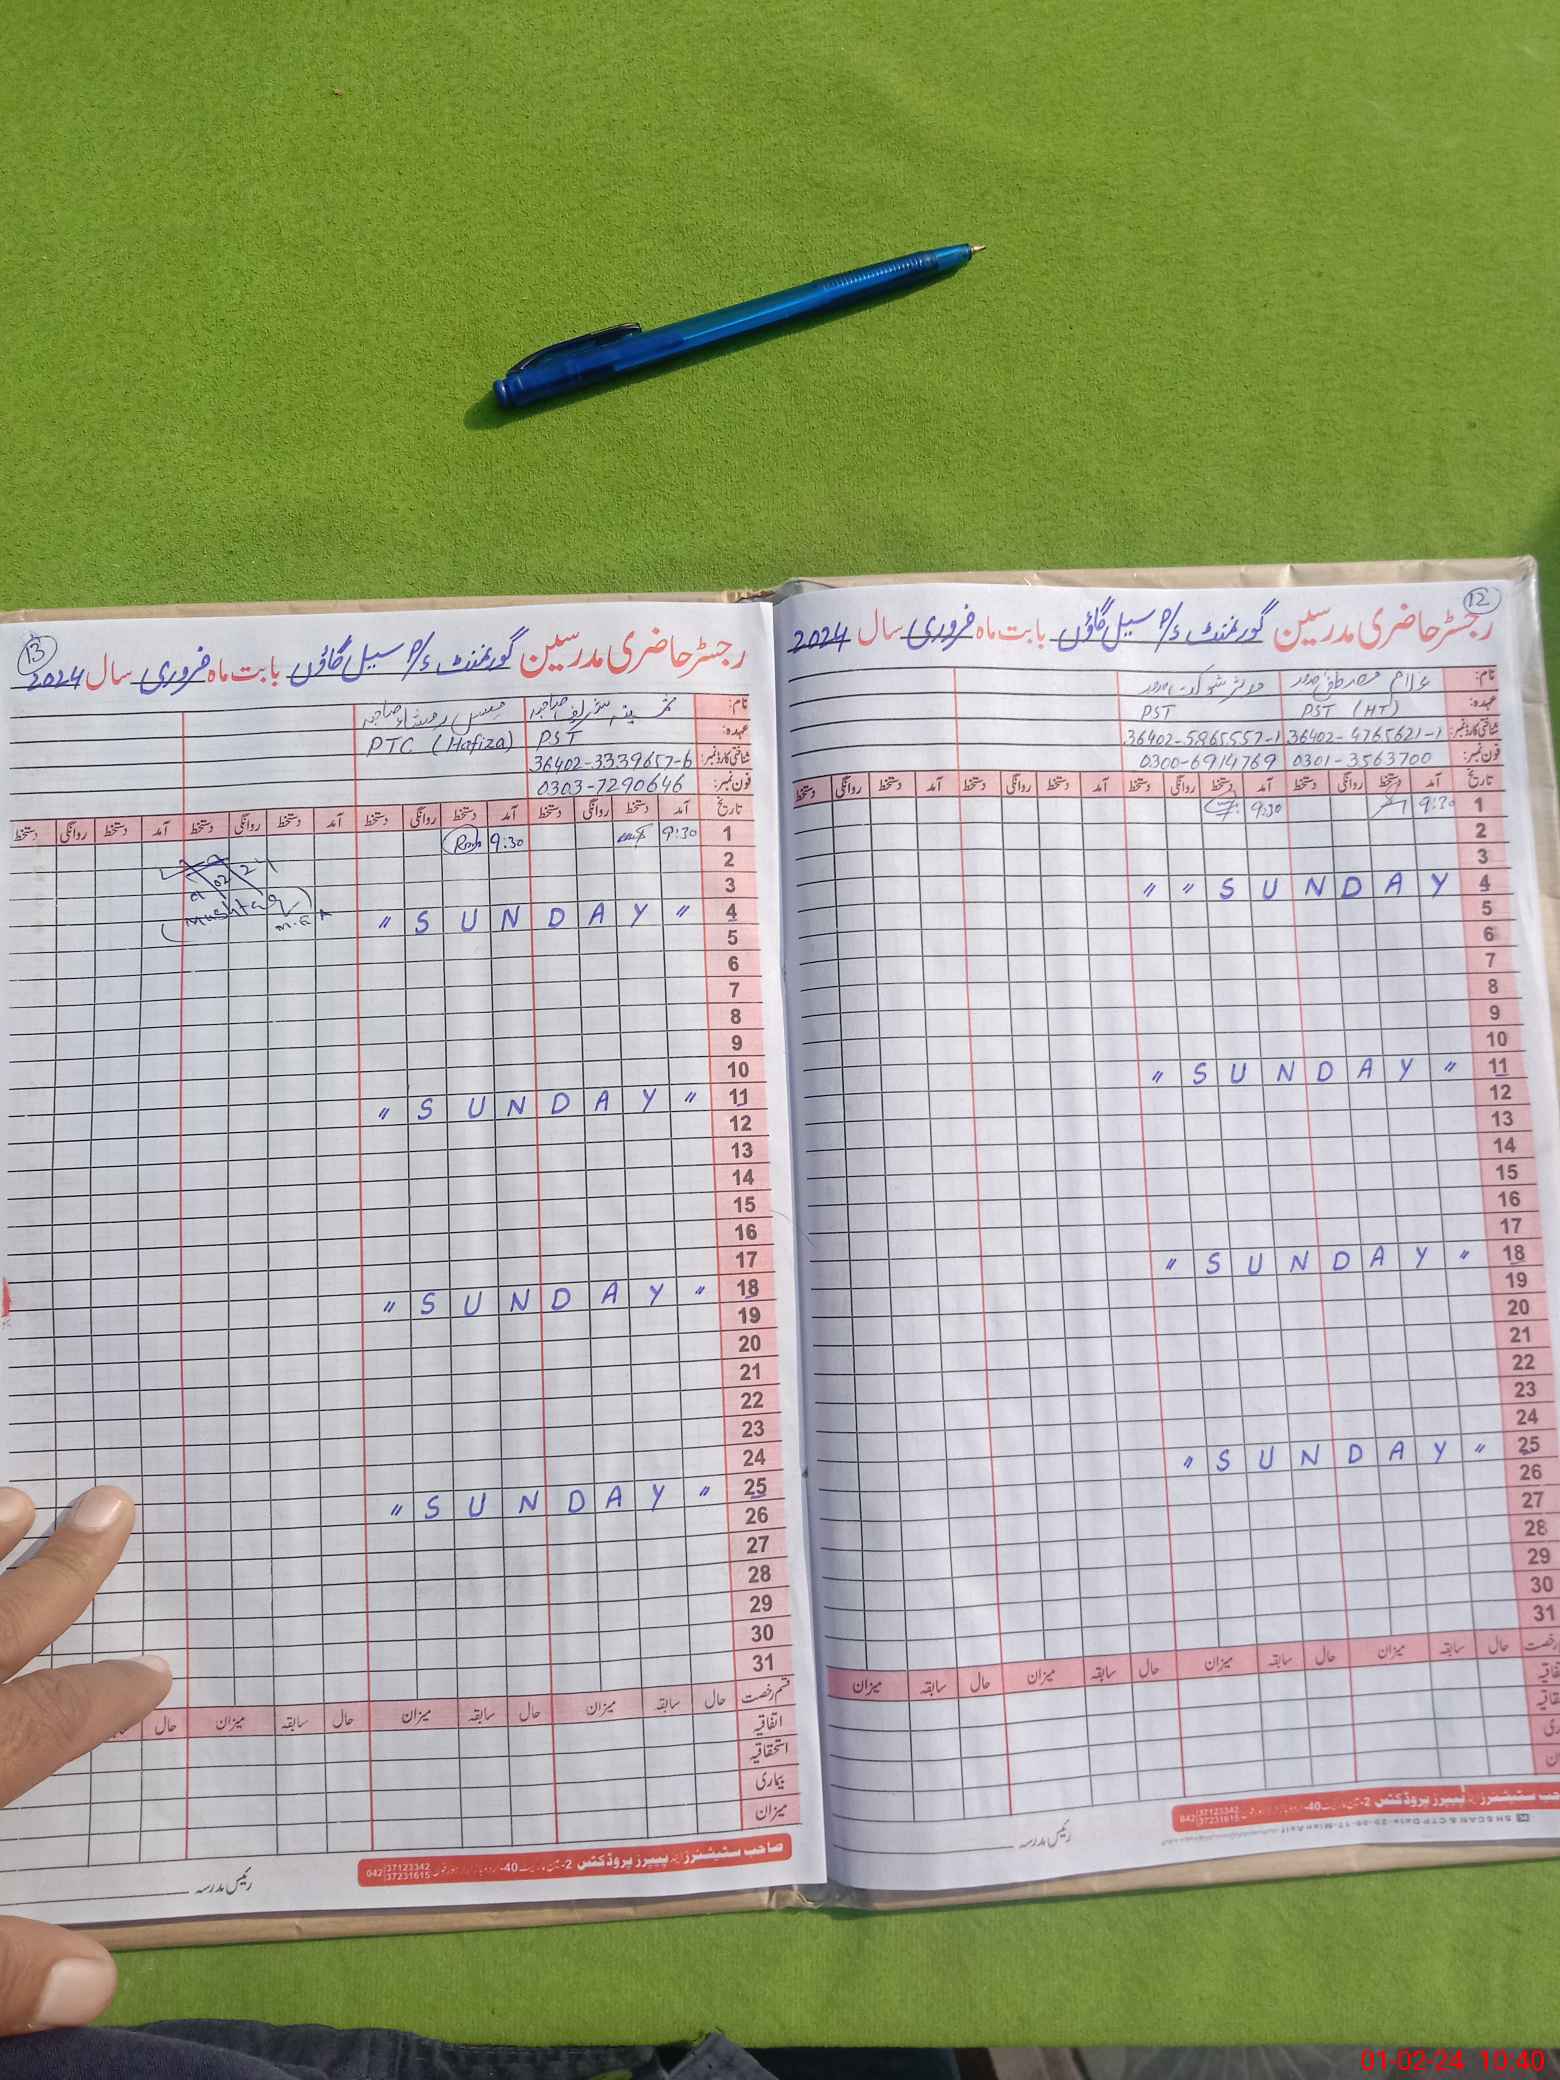 12
رجسٹر حاضری مدرسین گورنمنٹ P/S سیل گاؤں بابت ماہ فروری سال 2024
نام: غلام مصطفیٰ شوکت
عہدہ: PST (HT) PST
شناختی کارڈ نمبر: 36402-4765621-1 36402-5865557-1
فون نمبر: 0301-3563700 0300-6914769
تاریخ آمد دستخط روانگی دستخط آمد دستخط روانگی دستخط آمد دستخط روانگی دستخط آمد دستخط روانگی دستخط
1 9:30 9:30
2
3
4 SUNDAY " "
5
6
7
8
9
10
11 " SUNDAY "
12
13
14
15
16
17
18 " SUNDAY "
19
20
21
22
23
24
25 " SUNDAY "
26
27
28
29
30
31
رخصت حال سابقہ میزان حال سابقہ میزان حال سابقہ میزان حال سابقہ میزان
پیپرز پروڈکٹس 2- 40- 042 37123342 37231615
رئیس مدرسہ
13
رجسٹر حاضری مدرسین گورنمنٹ P/S سیل گاؤں بابت ماہ فروری سال 2024
نام: صاحبہ مس صاحبہ
عہدہ: PST PTC (Hafiza)
شناختی کارڈ نمبر: 36402-3339657-6
فون نمبر: 0303-7290646
تاریخ آمد دستخط روانگی دستخط آمد دستخط روانگی دستخط آمد دستخط روانگی دستخط آمد دستخط روانگی دستخط
1 9:30 9:30
2
3
4 " SUNDAY "
(Mushtaq)
5
6
7
8
9
10
11 " SUNDAY "
12
13
14
15
16
17
18 " SUNDAY "
19
20
21
22
23
24
25 " SUNDAY "
26
27
28
29
30
31
قسم رخصت حال سابقہ میزان حال سابقہ میزان حال سابقہ میزان حال
اتفاقیہ
استحقاقیہ
بیماری
میزان
صاحب سٹیشنرز اینڈ پیپرز پروڈکٹس 2- 40- 042 37123342 37231615
رئیس مدرسہ
01-02-24 10:40